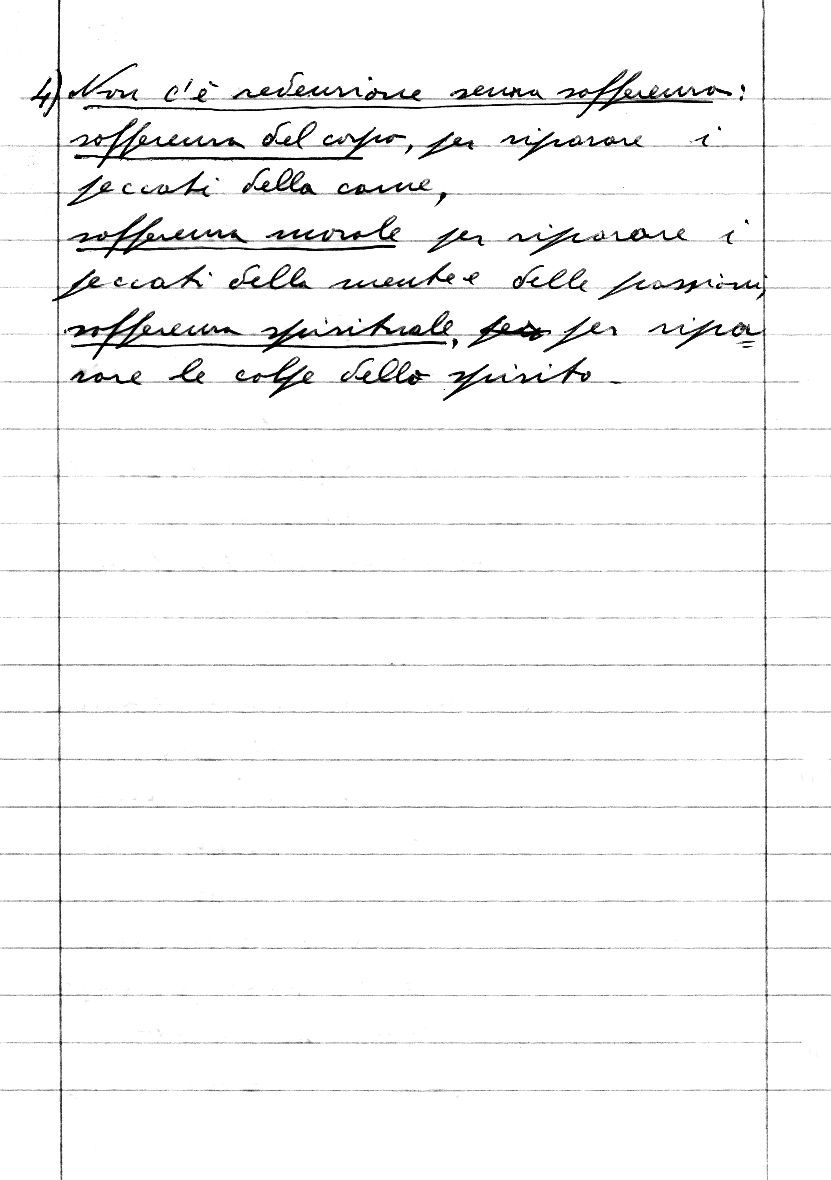 4) Non c'è redenzione senza sofferenza:
sofferenza del corpo, per riparare i
peccati della carne,
sofferenza morale per riparare i
peccati della mente e delle passioni,
sofferenza spirituale, per ripa=
rare le colpe dello spirito.